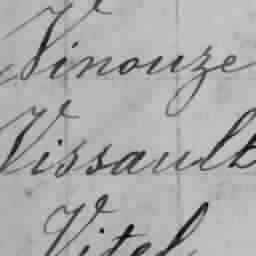 Vinouze
Vissault
Vitel